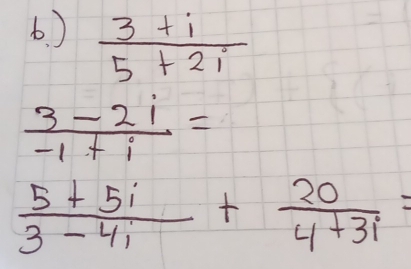 b.) 3 + i
5 + 2i
3 - 2i =
-1 + i
5 + 5i + 20 =
3 - 4i 4 + 3i